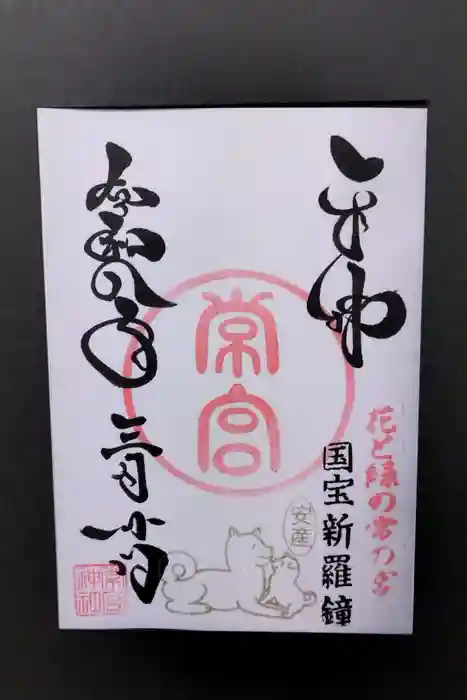 奉拝
花と緑の常の宮
国宝新羅鐘
常宮
安産
令和
年
三月
常宮
神社